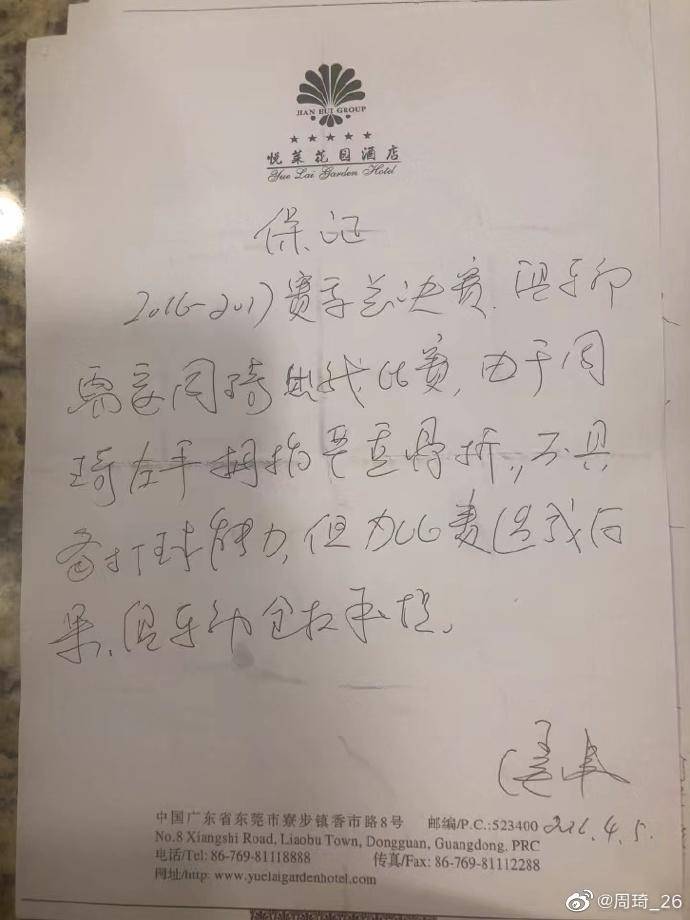 JIAN HUI GROUP
★★★★★
悦莱花园酒店
Yue Lai Garden Hotel
保证
2016-2017赛季总决赛,俱乐部
需要周琦出战比赛,由于周
琦左手拇指严重骨折,不具
备打球能力,但为比赛造成后
果,俱乐部全权承担。
2016.4.5.
中国广东省东莞市寮步镇香市路8号 邮编/P.C.:523400
No.8 Xiangshi Road, Liaobu Town, Dongguan, Guangdong, PRC
电话/Tel: 86-769-81118888 传真/Fax: 86-769-81112288
网址/http: www.yuelaigardenhotel.com
@周琦_26